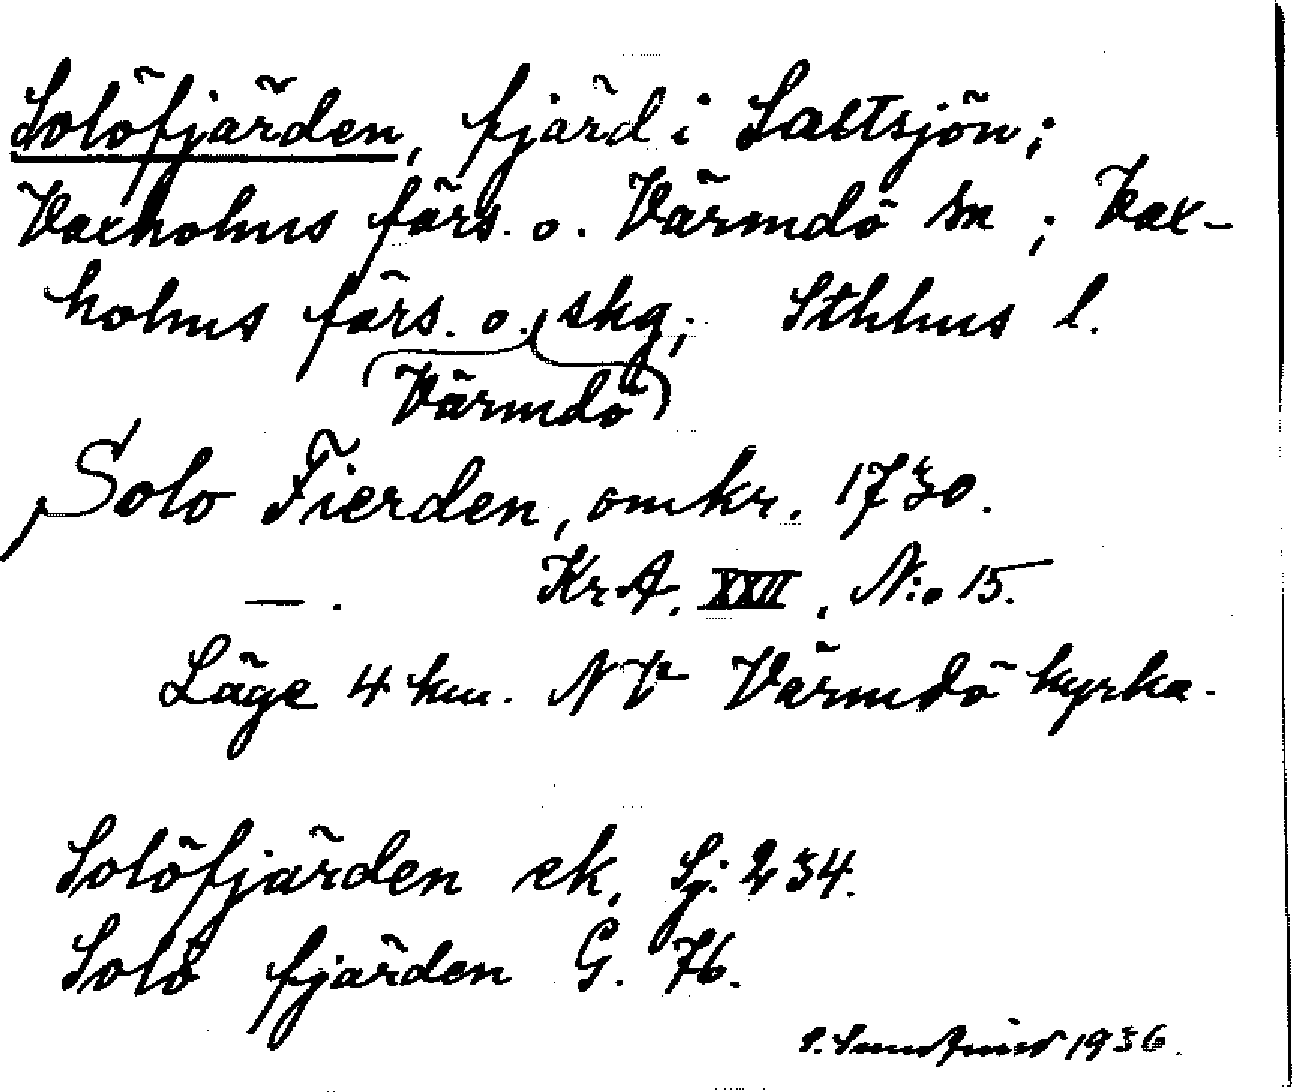 Solöfjärden, fjärd i Saltsjön;
Vaxholms förs. o. Värmdö sn; Vax-
holms förs. o. skg; Sthlms l.
Värmdö
Solo Fierden, omkr. 1730.
—. KrA. XXII. N:o 15.
Läge 4 km. NV Värmdö kyrka.
Solöfjärden ek, Sj. 234.
Solö fjärden G. 76.
1936.